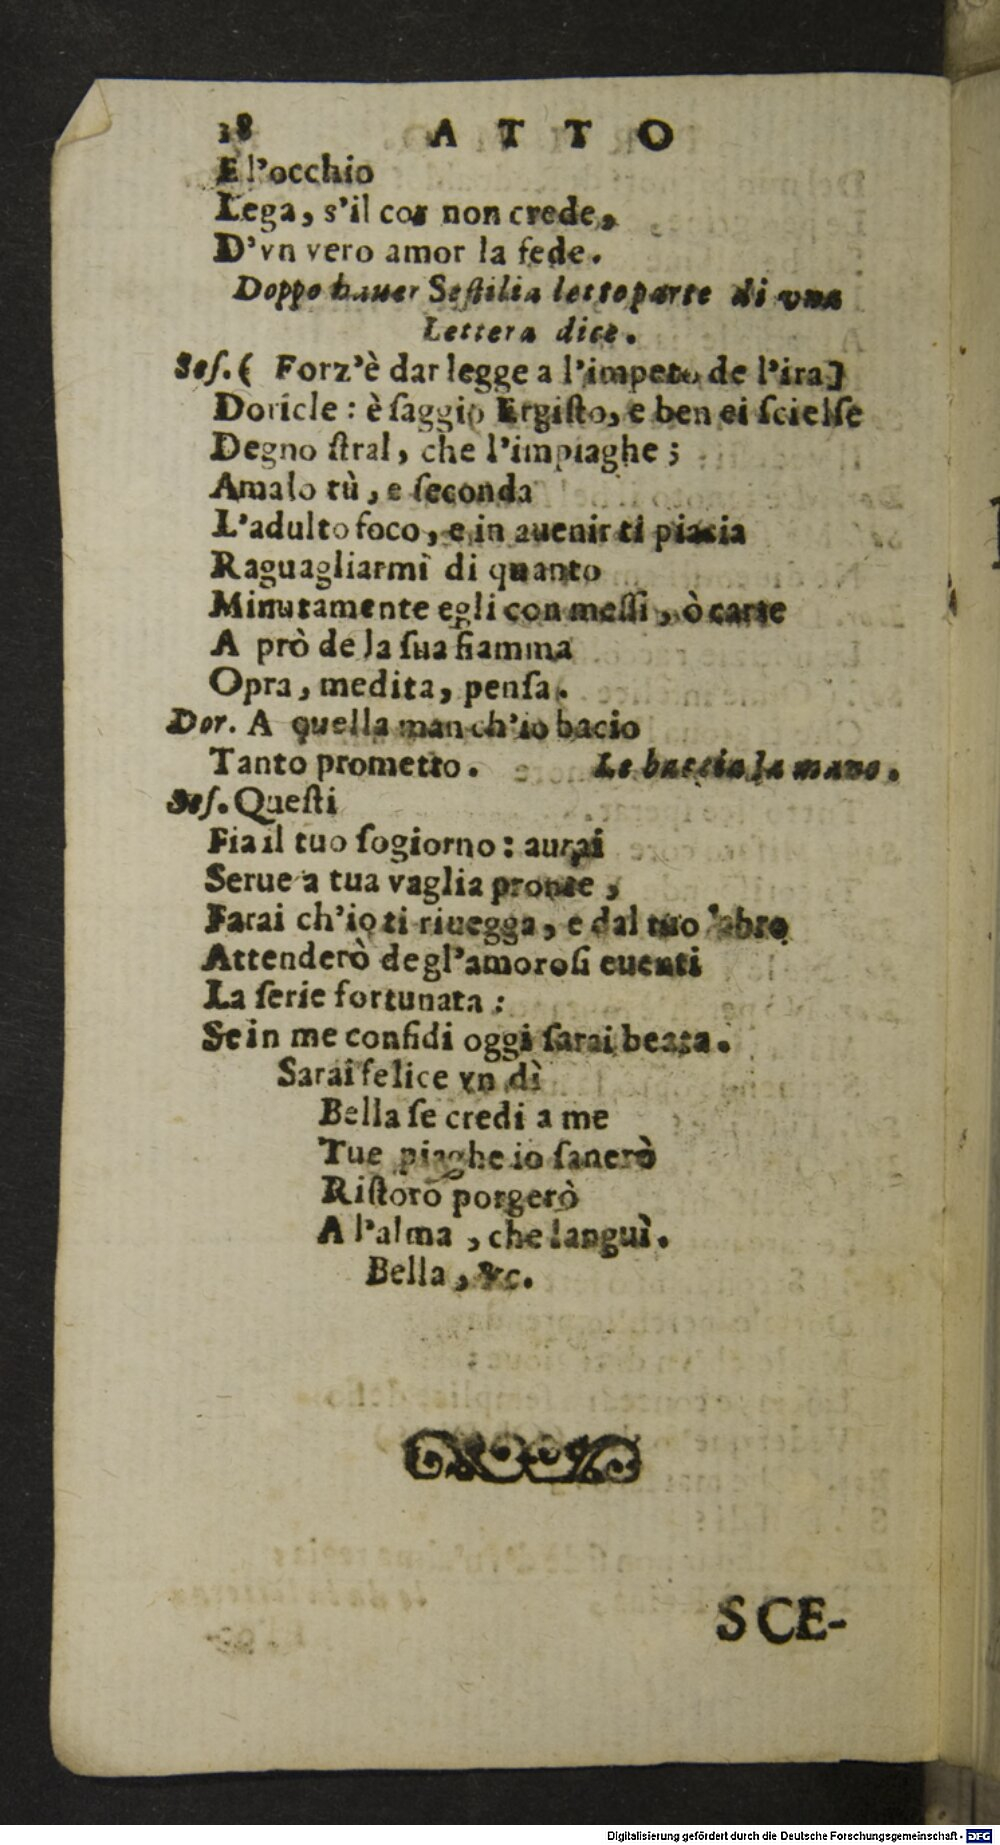 18 ATTO
E l'occhio
Lega, s'il cor non crede,
D'vn vero amor la fede.
Doppo hauer Sestilia letto parte di vna
Lettera dice.
Ses. ( Forz'è dar legge a l'impeto de l'ira]
Doricle: è ſaggio Ergiſto, e ben ei ſcielſe
Degno ſtral, che l'impiaghe;
Amalo tù, e ſeconda
L'adulto foco, e in auenir ti piacia
Raguagliarmì di quanto
Minutamente egli con meſſi, ò carte
A prò de la ſua fiamma
Opra, medita, penſa.
Dor. A quella man ch'io bacio
Tanto prometto. Le baccia la mano.
Seſ. Queſti
Fia il tuo ſogiorno: aurai
Serue a tua vaglia pronte,
Farai ch'io ti riuegga, e dal tuo labro
Attenderò degl'amoroſi euenti
La ſerie fortunata:
Se in me confidi oggi ſarai beata.
Sarai felice vn dì
Bella ſe credi a me
Tue piaghe io ſanerò
Riſtoro porgerò
A l'alma, che languì.
Bella, &c.
SCE-
Digitalisierung gefördert durch die Deutsche Forschungsgemeinschaft - DFG